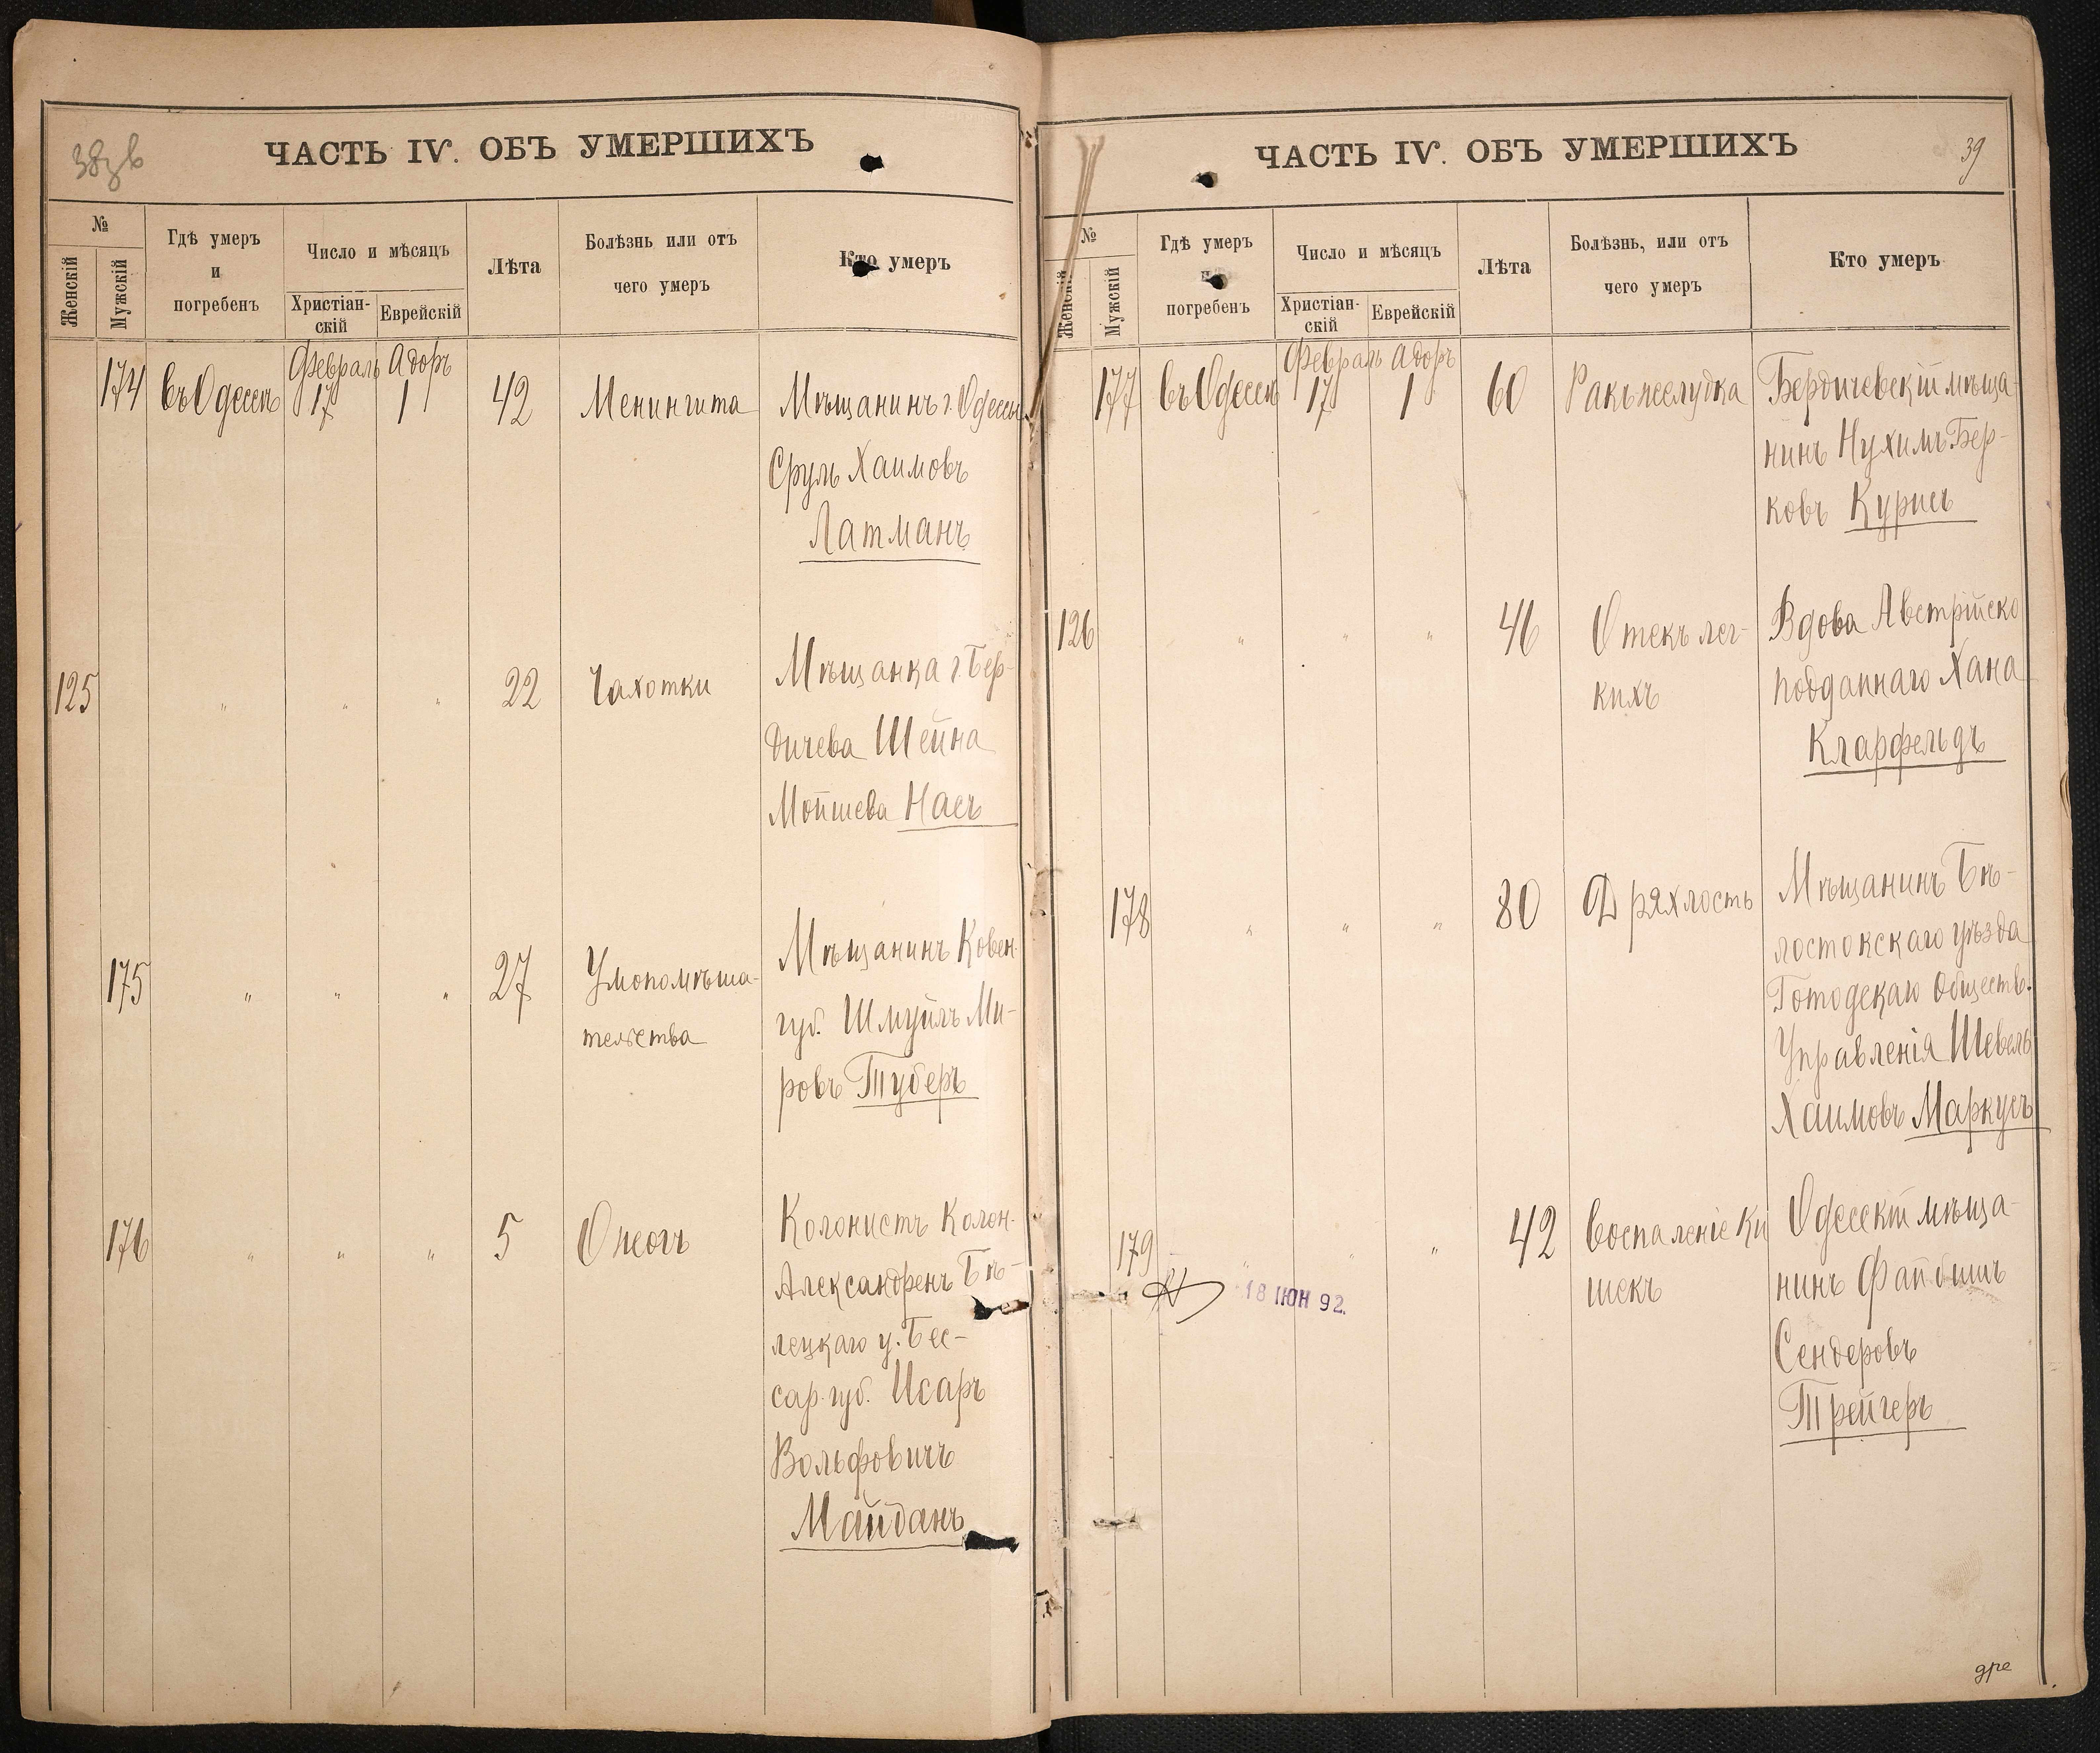 ЧАСТЬ IV. ОБЪ УМЕРШИХЪ
№
Женскій
Мужскій
Гдѣ умеръ
и
погребенъ
Число и мѣсяцъ
Христіан-
скій
Еврейскій
Лѣта
Болѣзнь или отъ
чего умеръ
Кто умеръ
Февраль Адоръ
174 въ Одессѣ 17 1 42 Менингита Мѣщанинъ г. Одессы
Сруль Хаимовъ
Латманъ
125 " " " 22 Чахотки Мѣщанка г. Бер-
дичева Шейна
Мойшева Насъ
175 " " " 27 Умопомѣша- Мѣщанинъ Ковен.
тельства губ. Шмуйлъ Ми-
ровъ Туберъ
176 " " " 5 Ожогъ Колонистъ Колон.
Александренъ Бѣ-
лецкаго у. Бес-
сар. губ. Исаръ
Вольфовичъ
Майданъ
ЧАСТЬ IV. ОБЪ УМЕРШИХЪ
39
№
Женскій
Мужскій
Гдѣ умеръ
и
погребенъ
Число и мѣсяцъ
Христіан-
скій
Еврейскій
Лѣта
Болѣзнь, или отъ
чего умеръ
Кто умеръ
Февраль Адоръ
177 въ Одессѣ 17 1 60 Ракъ желудка Бердичевскій мѣща-
нинъ Нухимъ Бер-
ковъ Курисъ
126 " " " 46 Отекъ лег- Вдова Австрійско
кихъ подданнаго Хана
Кларфельдъ
178 " " " 80 Дряхлость Мѣщанинъ Бѣ-
лостокскаго уѣзда
Обществ.
Управленія Шевель
Хаимовъ Маркусъ
179 " " " 42 Воспаленіе Ки Одесскій мѣща-
шекъ нинъ Файбишъ
Сендеровъ
Трейгеръ
18 ІЮН 92.